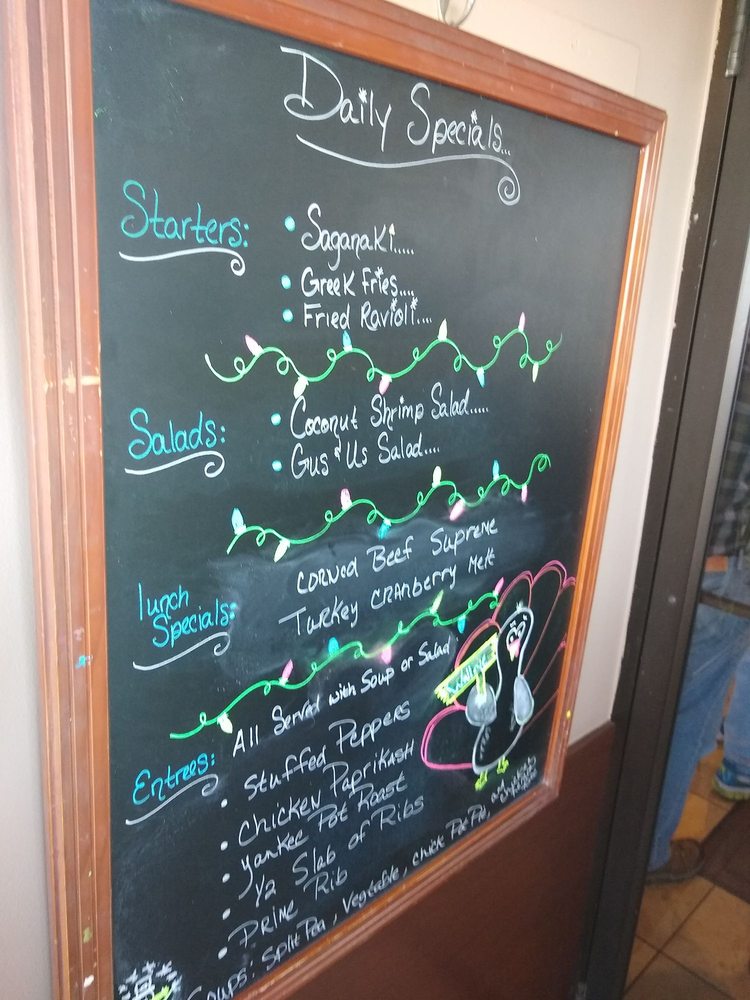 Daily Specials...
Starters:
• Saganaki.....
• Greek Fries....
• Fried Ravioli....
Salads:
• Coconut Shrimp Salad.....
• Gus & Us Salad....
lunch Specials:
Corned Beef Supreme
Turkey Cranberry Melt
Entrees:
All Served with Soup or Salad
• Stuffed Peppers
• Chicken Paprikash
• Yankee Pot Roast
• 1/2 Slab of Ribs
• Prime Rib
Soups: Split Pea, Vegetable, Chick Pot Pie,